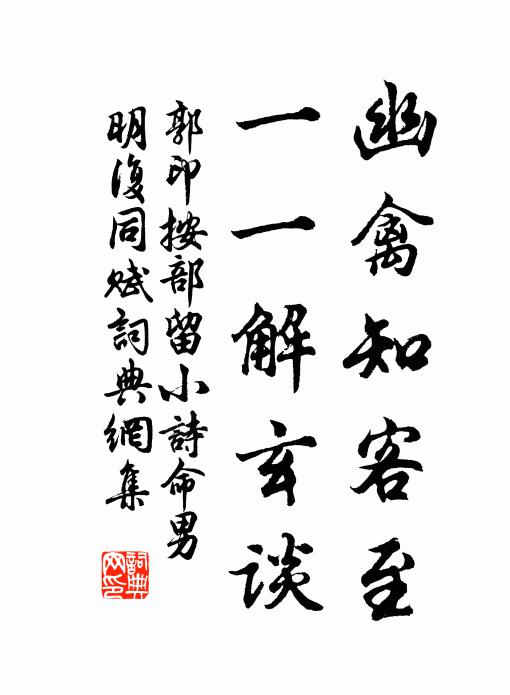 幽禽知客至
一一解玄談
郭印按部留小詩命男
明復同賦詞典網集
詞典網印